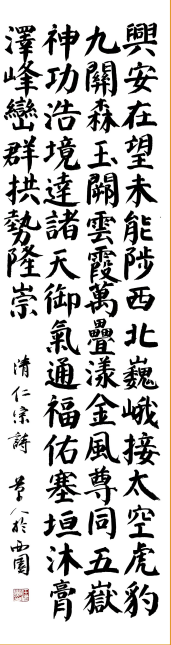 興安在望未能陟西北巍峨接太空虎豹
九關森玉闕雲霞萬疊漾金風尊同五嶽
神功浩境達諸天御氣通福佑塞垣沐膏
澤峰巒群拱勢隆崇
清仁宗詩
人於西園